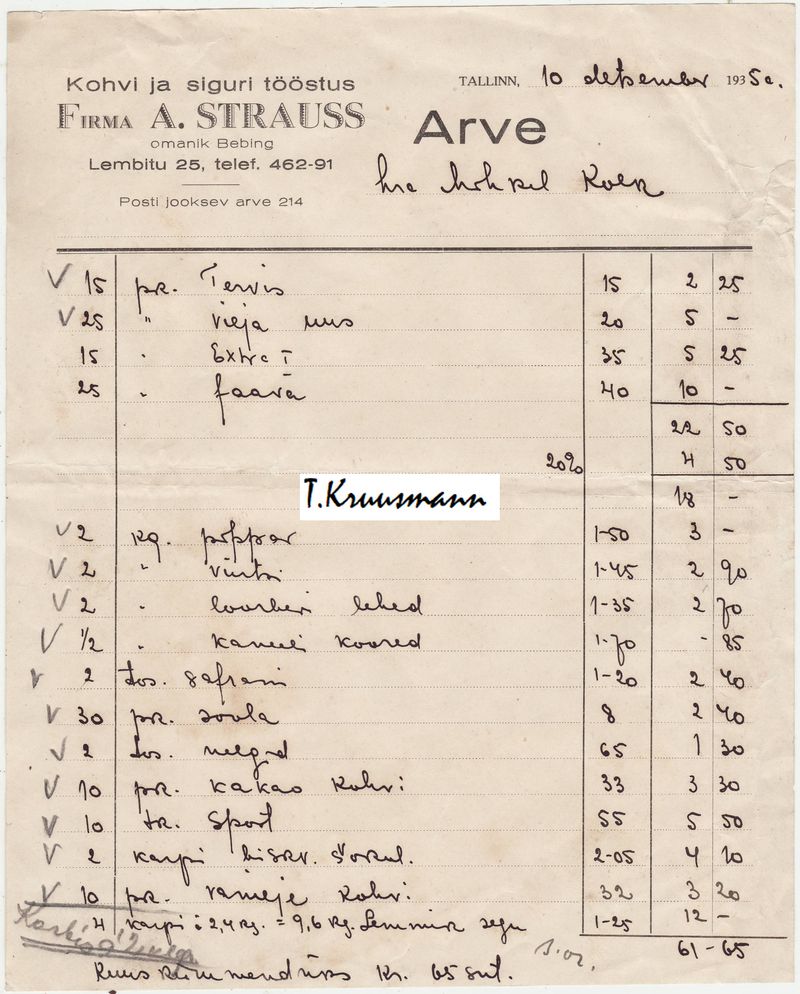 Kohvi ja siguri tööstus
FIRMA A. STRAUSS
omanik Bebing
Lembitu 25, telef. 462-91
Posti jooksev arve 214
TALLINN, 10 detsember 1935 a.
Arve
hra Mihkel Kolk
15 pk. Tervis 15 2 25
25 " vilja uus 20 5 -
15 " Extra I 35 5 25
25 " Jaava 40 10 -
22 50
20% 4 50
T.Kruusmann
18 -
2 kg. pippar 1-50 3 -
2 " vürtsi 1-45 2 90
2 " loorberi lehed 1-35 2 70
1/2 " kaneeli koored 1-70 - 85
2 tos. safrani 1-20 2 40
30 pk. soola 8 2 40
2 tos. nelgid 65 1 30
10 pk. kakao kohvi 33 3 30
10 tk. Sport 55 5 50
2 karpi biskv. šokul. 2-05 4 10
10 pk. vanilje kohvi 32 3 20
4 karpi à 2,4 kg. = 9,6 kg. Lemmik segu 1-25 12 -
61-65
Kuuskümmendüks Kr. 65 snt.